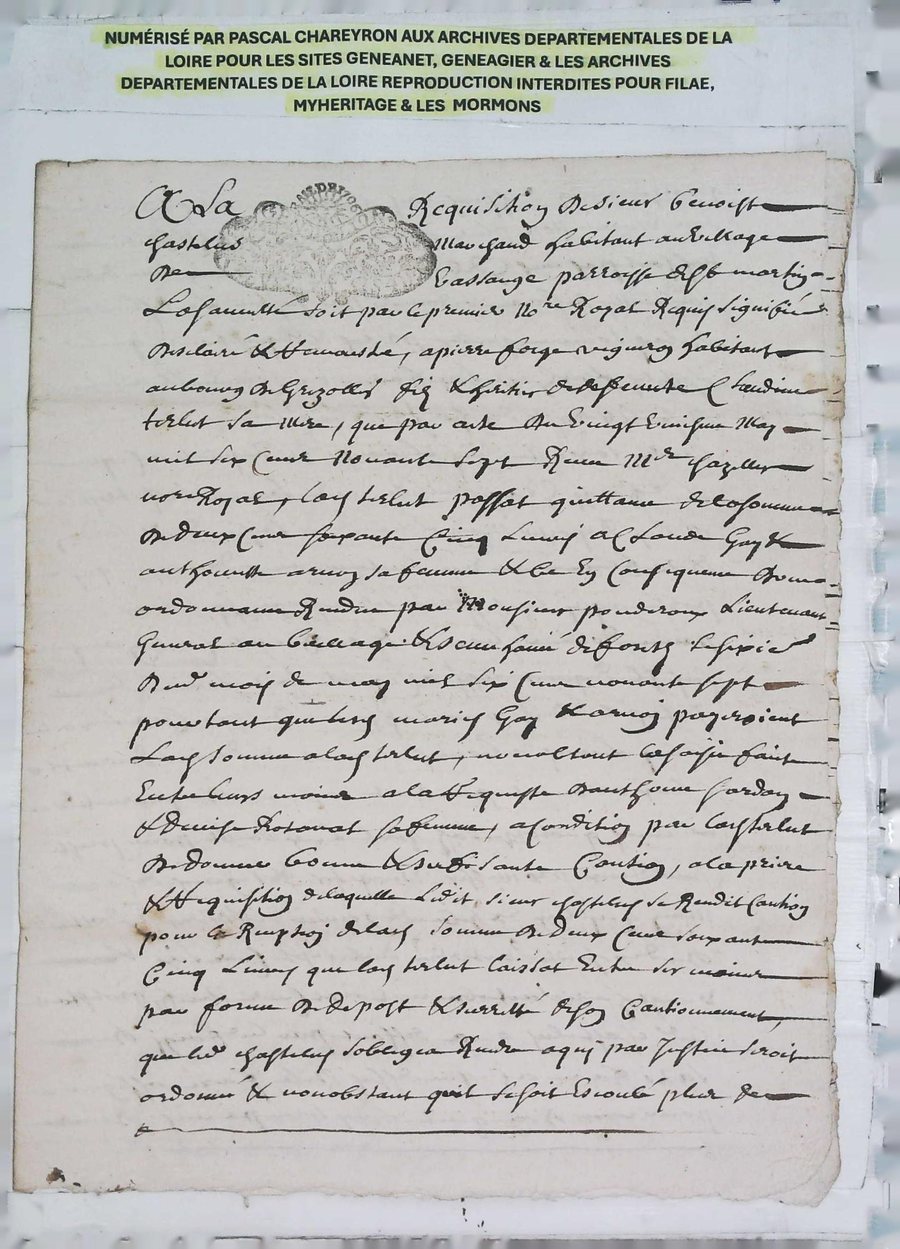 NUMÉRISÉ PAR PASCAL CHAREYRON AUX ARCHIVES DEPARTEMENTALES DE LA
LOIRE POUR LES SITES GENEANET, GENEAGIER & LES ARCHIVES
DEPARTEMENTALES DE LA LOIRE REPRODUCTION INTERDITES POUR FILAE,
MYHERITAGE & LES MORMONS
A La Requisition De sieur benoist
chastelus Marchand habitant au village
De parroisse de st martin
La sauveté soit par le premier nore Royal Requis signifié
Desclairé & Remonstré, a pierre forge vigneron habitant
au bourg De Grezolles fils & heritier de deffuncte Claudine
terlut sa Mere, que par acte Du vingt May
mil six cent Nonante sept Receu Mer chazelles
nore Royal, lad terlut passat quittance de la somme
De deux cent soixante Cinq Livres a Claude Gay &
anthoinette arnoy sa femme & Ce En Consequence D'une
ordonnance Rendue par Monsieur ponderoux Lieutenant
General au bailliage & de forest le sixie
Dud mois de may mil six Cent nonante sept
pourtant que lesd mariés Gay & arnoy payeroient
Lad somme a lad terlut, nonobstant la saisie faite
Entre leurs mains a la Requeste D'anthoine
& Denise sa femme, a Condition par lad terlut
De donner bonne & suffisante Caution, a la priere
& Requisition de laquelle Ledit sieur chastelus se Rendit Caution
pour la Reception de lad somme De deux Cent soixante
Cinq Livres que lad terlut laissat Entre ses mains
par forme De depost & surretté de son Cautionnement,
que led chastelus s'obligea Rendre a qui par Justice seroit
ordonné & nonobstant qu'il se soit Escoulé plus de